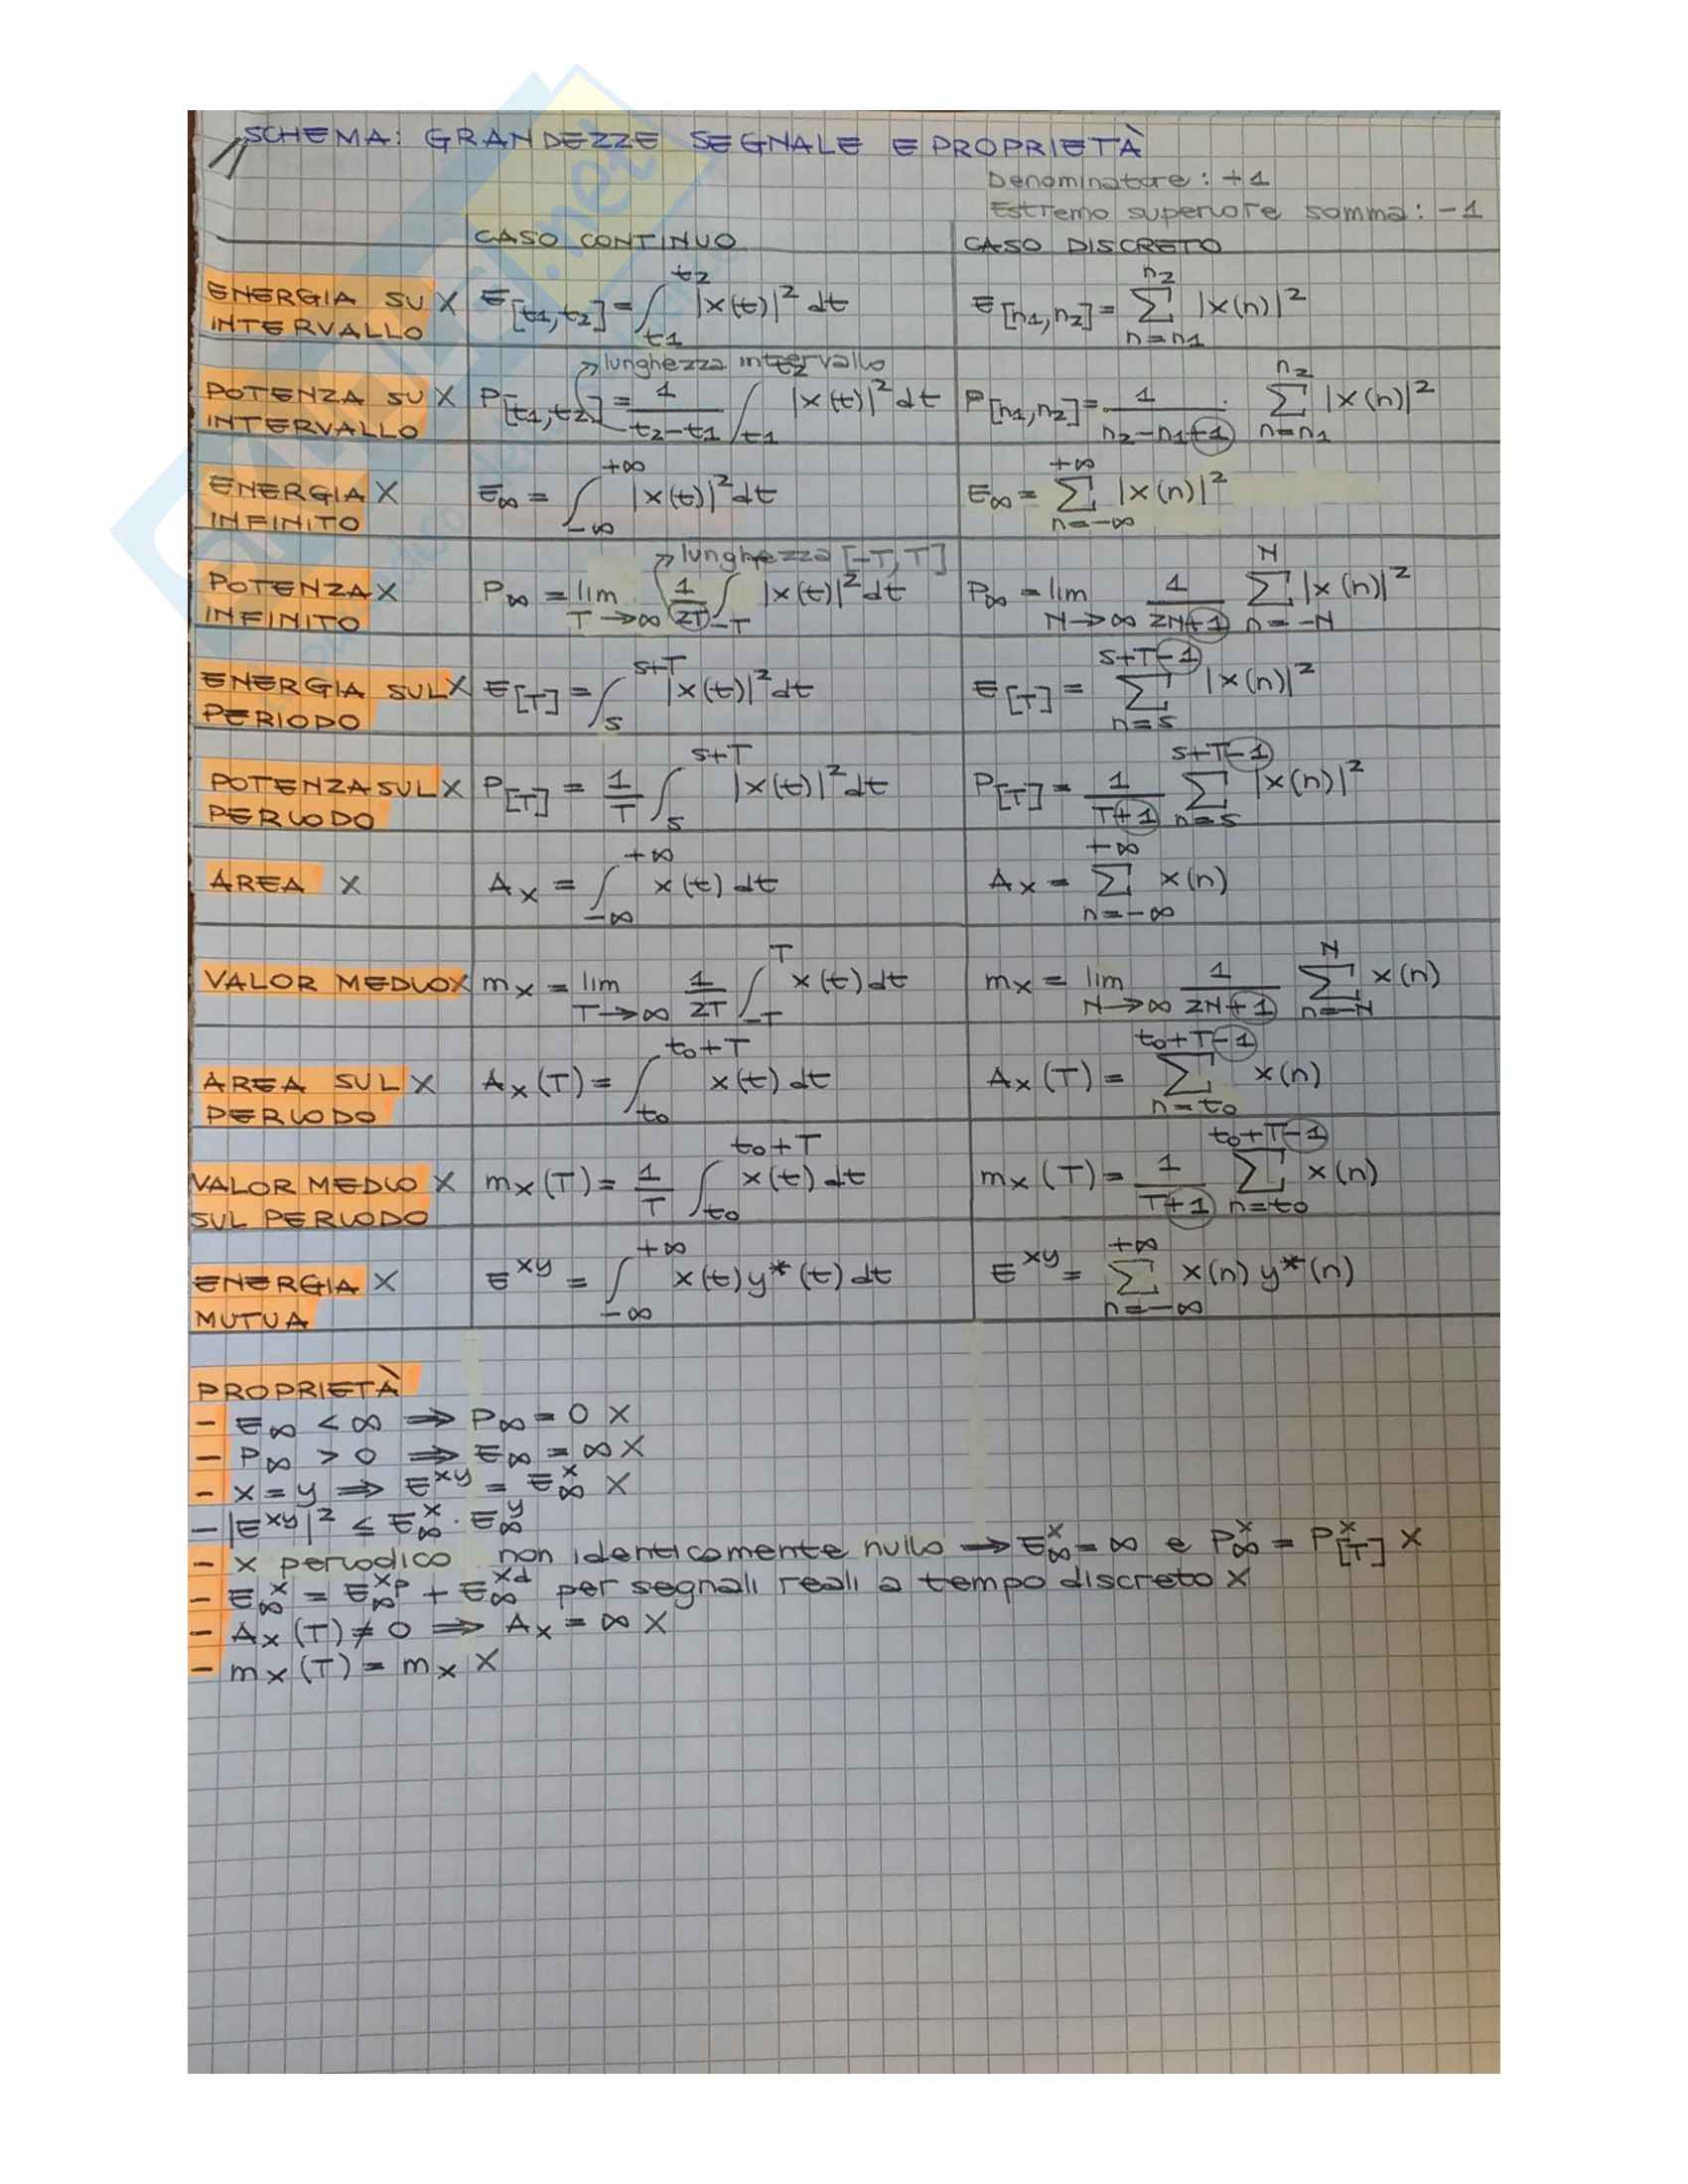 SCHEMA: GRANDEZZE SEGNALE E PROPRIETÀ
Denominatore: +1
Estremo superiore somma: -1
CASO CONTINUO CASO DISCRETO
ENERGIA SU X INTERVALLO E[t1,t2] = ∫_{t1}^{t2} |x(t)|² dt E[n1,n2] = Σ_{n=n1}^{n2} |x(n)|²
lunghezza intervallo
POTENZA SU X INTERVALLO P[t1,t2] = 1/(t2-t1) ∫_{t1}^{t2} |x(t)|² dt P[n1,n2] = 1/(n2-n1+1) · Σ_{n=n1}^{n2} |x(n)|²
ENERGIA X INFINITO E∞ = ∫_{-∞}^{+∞} |x(t)|² dt E∞ = Σ_{n=-∞}^{+∞} |x(n)|²
lunghezza [-T, T]
POTENZA X INFINITO P∞ = lim_{T→∞} 1/2T ∫_{-T} |x(t)|² dt P∞ = lim_{N→∞} 1/(2N+1) Σ_{n=-N}^{N} |x(n)|²
ENERGIA SUL X PERIODO E[T] = ∫_{s}^{s+T} |x(t)|² dt E[T] = Σ_{n=s}^{s+T-1} |x(n)|²
POTENZA SUL X PERIODO P[T] = 1/T ∫_{s}^{s+T} |x(t)|² dt P[T] = 1/(T+1) Σ_{n=s}^{s+T-1} |x(n)|²
AREA X Ax = ∫_{-∞}^{+∞} x(t) dt Ax = Σ_{n=-∞}^{+∞} x(n)
VALOR MEDIO X mx = lim_{T→∞} 1/2T ∫_{-T}^{T} x(t) dt mx = lim_{N→∞} 1/(2N+1) Σ_{n=-N}^{N} x(n)
AREA SUL X PERIODO Ax(T) = ∫_{t0}^{t0+T} x(t) dt Ax(T) = Σ_{n=t0}^{t0+T-1} x(n)
VALOR MEDIO X SUL PERIODO mx(T) = 1/T ∫_{t0}^{t0+T} x(t) dt mx(T) = 1/(T+1) Σ_{n=t0}^{t0+T-1} x(n)
ENERGIA X MUTUA E^{xy} = ∫_{-∞}^{+∞} x(t) y*(t) dt E^{xy} = Σ_{n=-∞}^{+∞} x(n) y*(n)
PROPRIETÀ
- E∞ < ∞ ⇒ P∞ = 0 X
- P∞ > 0 ⇒ E∞ = ∞ X
- x = y ⇒ E^{xy} = E∞^{x} X
- |E^{xy}|² ≤ E∞^{x} · E∞^{y}
- x periodico non identicamente nullo → E∞^{x} = ∞ e P∞^{x} = P[T]^{x} X
- E∞^{x} = E∞^{xp} + E∞^{xd} per segnali reali a tempo discreto X
- Ax(T) ≠ 0 ⇒ Ax = ∞ X
- mx(T) = mx X